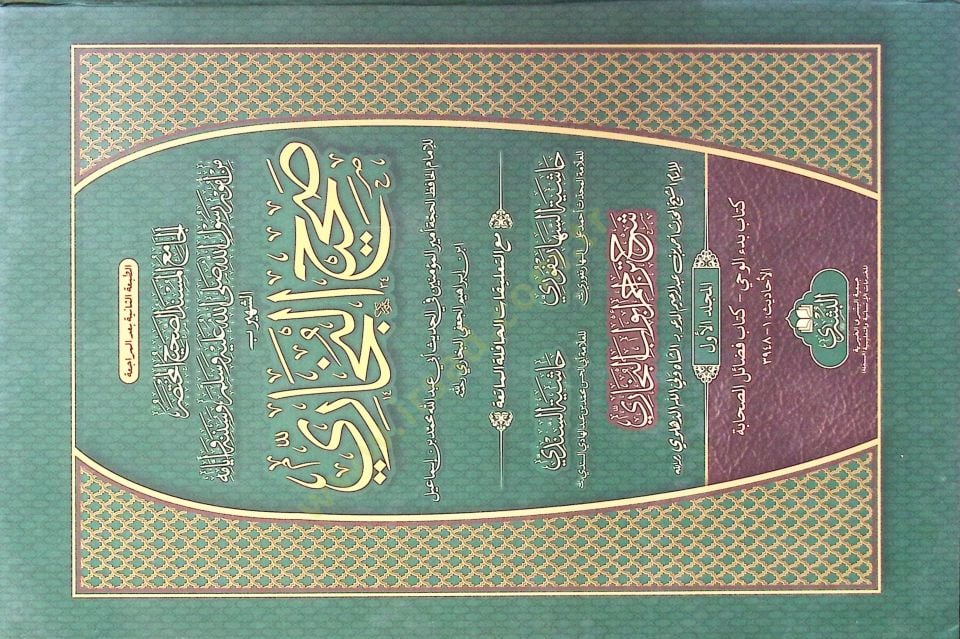 الطبعة الثانية بعد المراجعة
الجامع المسند الصحيح المختصر
من أمور رسول الله صلى الله عليه وسلم وسننه وأيامه
المشهور ب
صحيح البخاري
للإمام الحافظ الحجة أمير المؤمنين في الحديث أبي عبد الله محمد بن إسماعيل
ابن إبراهيم الجعفي البخاري رحمه الله
مع التعليقات الحافلة الماتعة
حاشية السهارنفوري
للعلامة المحدث أحمد علي السهارنفوري
حاشية السندي
للعلامة أبي الحسن محمد بن عبد الهادي السندي
شرح تراجم أبواب البخاري
للإمام الشيخ المحدث أحمد بن عبد الرحيم المعروف بالشاه ولي الله الدهلوي
المجلد الأول
كتاب بدء الوحي - كتاب فضائل الصحابة
الأحاديث: ١-٣٩٤٨
البشرى